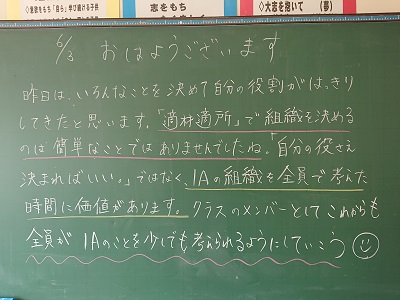 志をもち
「大志を抱いて (夢)
6/3 おはようございます
昨日は、いろんなことを決めて自分の役割がはっきり
してきたと思います。「適材適所」で組織を決める
のは簡単なことではありませんでしたね。「自分の役さえ
決まればいい。」ではなく、1Aの組織を全員で考えた
時間に価値があります。クラスのメンバーとしてこれからも
全員が1Aのことを少しでも考えられるようにしていこう